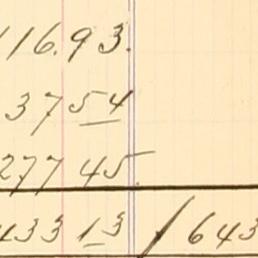 116.93.
37 54
277 45
433 13 / 643